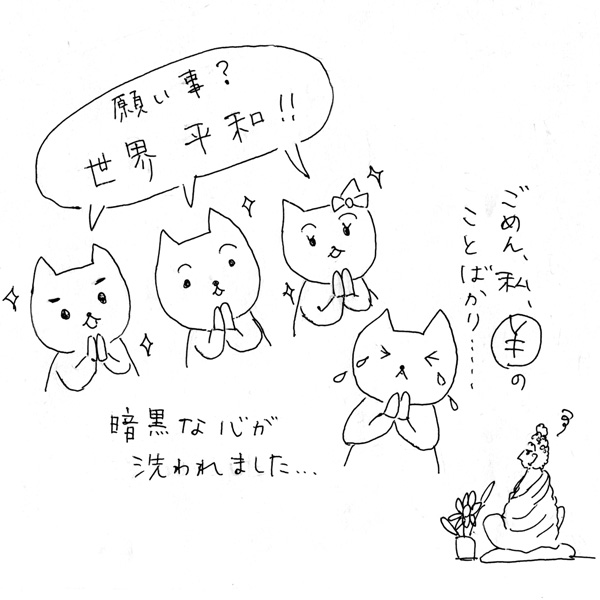 願い事？
世界 平和!!
ごめん、私、¥の
ことばかり……
暗黒な心が
洗われました…